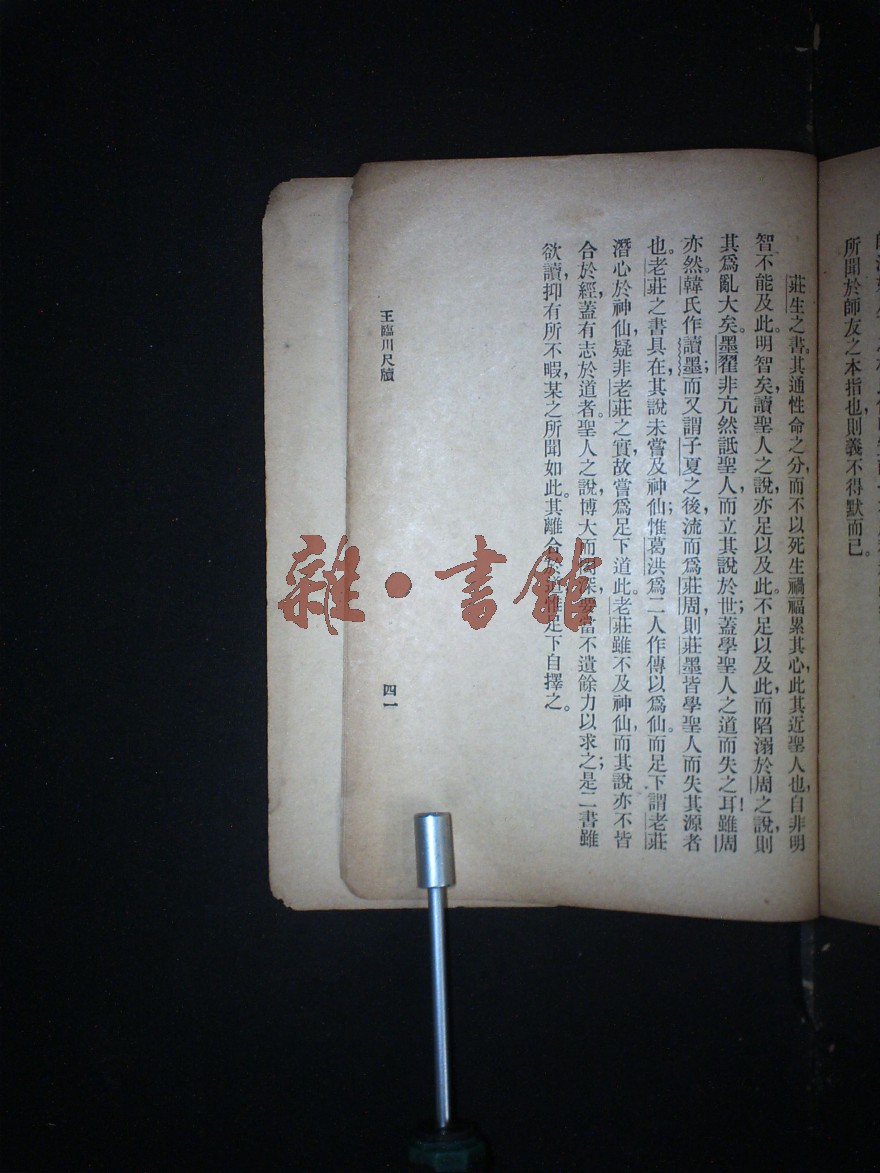 所聞於師友之本指也，則義不得默而已。
莊生之書。其通性命之分，而不以死生禍福累其心，此其近聖人也，自非明
智不能及此。明智矣，讀聖人之說，亦足以及此。不足以及此，而陷溺於周之說，則
其爲亂大矣。墨翟非亢然詆聖人，而立其說於世；蓋學聖人之道而失之耳！雖周
亦然。韓氏作讀墨；而又謂子夏之後，流而爲莊周，則莊墨皆學聖人而失其源者
也。老莊之書具在，其說未嘗及神仙；惟葛洪爲二人作傳以爲仙。而足下謂老莊
潛心於神仙，疑非老莊之實，故嘗爲足下道此。老莊雖不及神仙，而其說亦不皆
合於經，蓋有志於道者。聖人之說，博大而深要當不遺餘力以求之；是二書雖
欲讀，抑有所不暇。某之所聞如此。其離合於道惟足下自擇之。
王臨川尺牘
四一
雜·書館